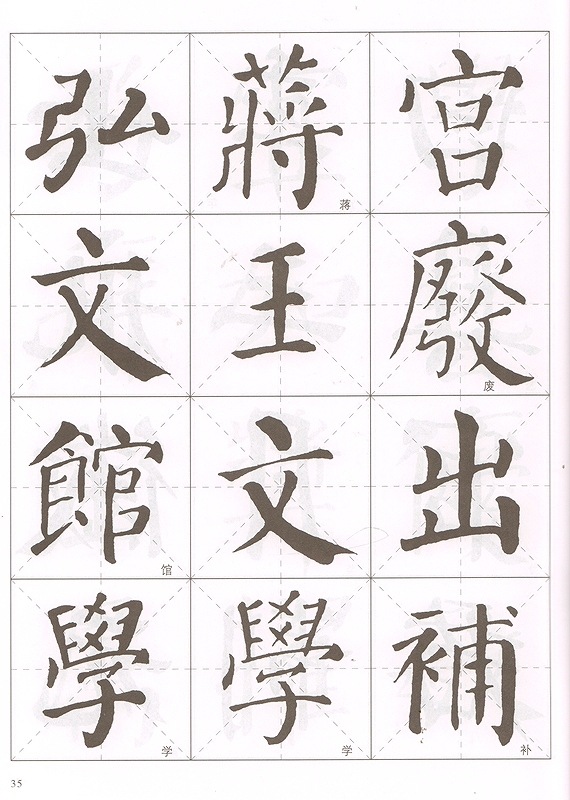 宫廢出補
蔣王文學
弘文館學
废
补
蒋
学
馆
学
35